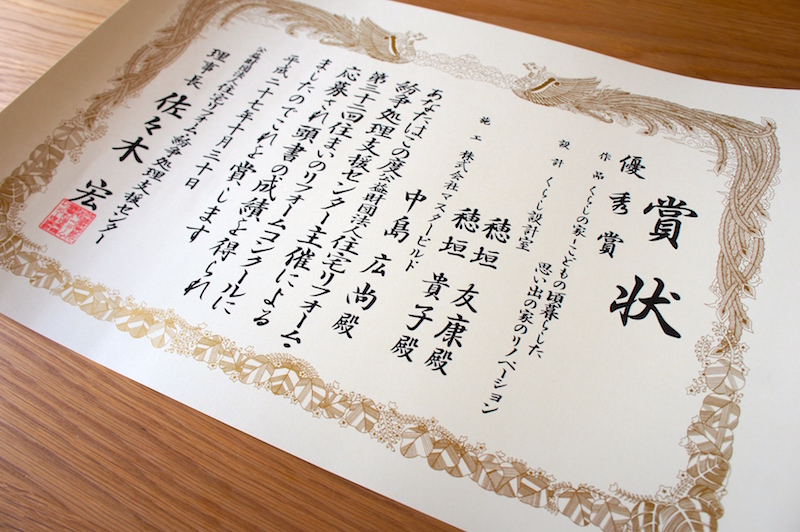 賞状
優秀賞
作品 くらしの家ーこどもの頃暮らした
思い出の家のリノベーション
設計 くらし設計室
穂垣 友康殿
穂垣 貴子殿
施工 株式会社マスタービルド
中島 広尚殿
あなたはこの度公益財団法人住宅リフォーム・
紛争処理支援センター主催による
第三十二回住まいのリフォームコンクールに
応募され頭書の成績を得られ
ましたのでこれを賞します
平成二十七年十月三十日
公益財団法人住宅リフォーム・紛争処理支援センター
理事長 佐々木 宏